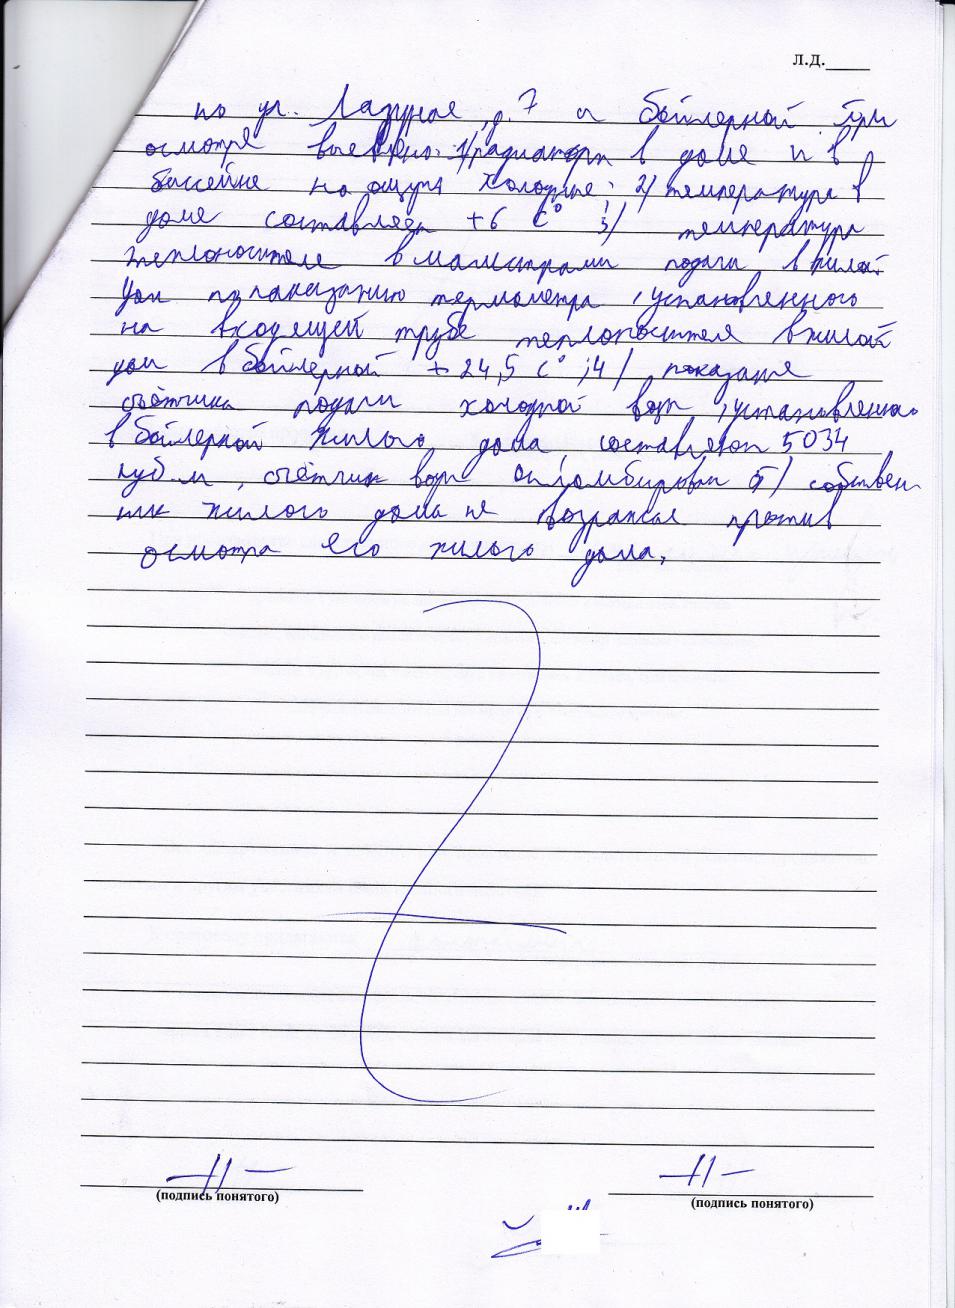 Л.Д.
по ул. Лазурная, д. 7 и бойлерной. При
осмотре выявлено: 1/ радиаторы в доме и в
бассейне на ощупь холодные; 2/ температура в
доме составляет +6 С° 3/ температура
теплоносителя в магистрали подачи в жилой
дом по показанию термометра, установленного
на входящей трубе теплоносителя в жилой
дом в бойлерной + 24,5 С°; 4/ показания
счётчика подачи холодной воды, установленного
в бойлерной жилого дома, составляют 5034
куб.м, счётчик воды опломбирован 5/ собствен
ник жилого дома не возражал против
осмотра его жилого дома.
(подпись понятого)
(подпись понятого)